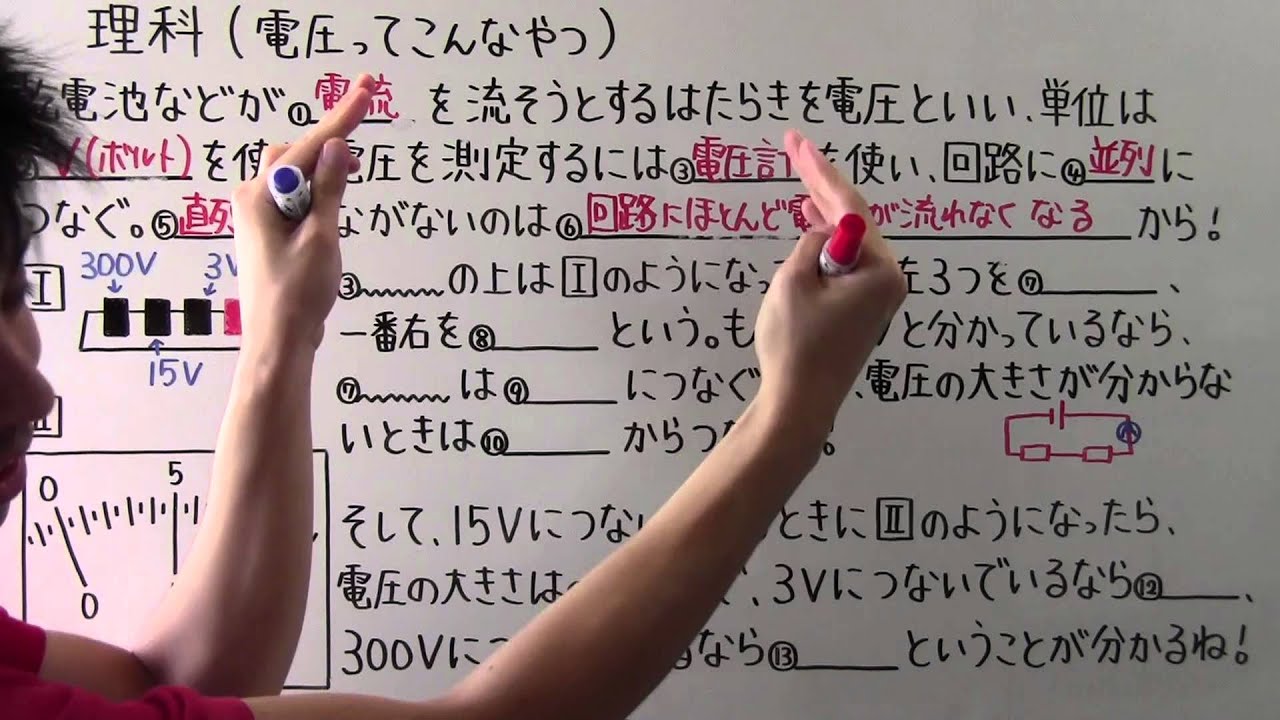 理科(電圧ってこんなやつ)
電池などが①電流 を流そうとするはたらきを電圧といい、単位は
V(ボルト)を使 電圧を測定するには③電圧計を使い、回路に④並列に
つなぐ。⑤直列 ながないのは⑥回路にほとんど電 が流れなくなる から!
300V 3V
I
15V
③ の上はIのようになって 左3つを⑦ 、
一番右を⑧ という。も と分かっているなら、
⑦ は⑨ につなぐ 、電圧の大きさが分からな
いときは⑩ からつ !
II
0 5
0
そして、15Vにつない ときにIIのようになったら、
電圧の大きさは 、3Vにつないでいるなら⑫ 、
300Vにつ るなら⑬ ということが分かるね!